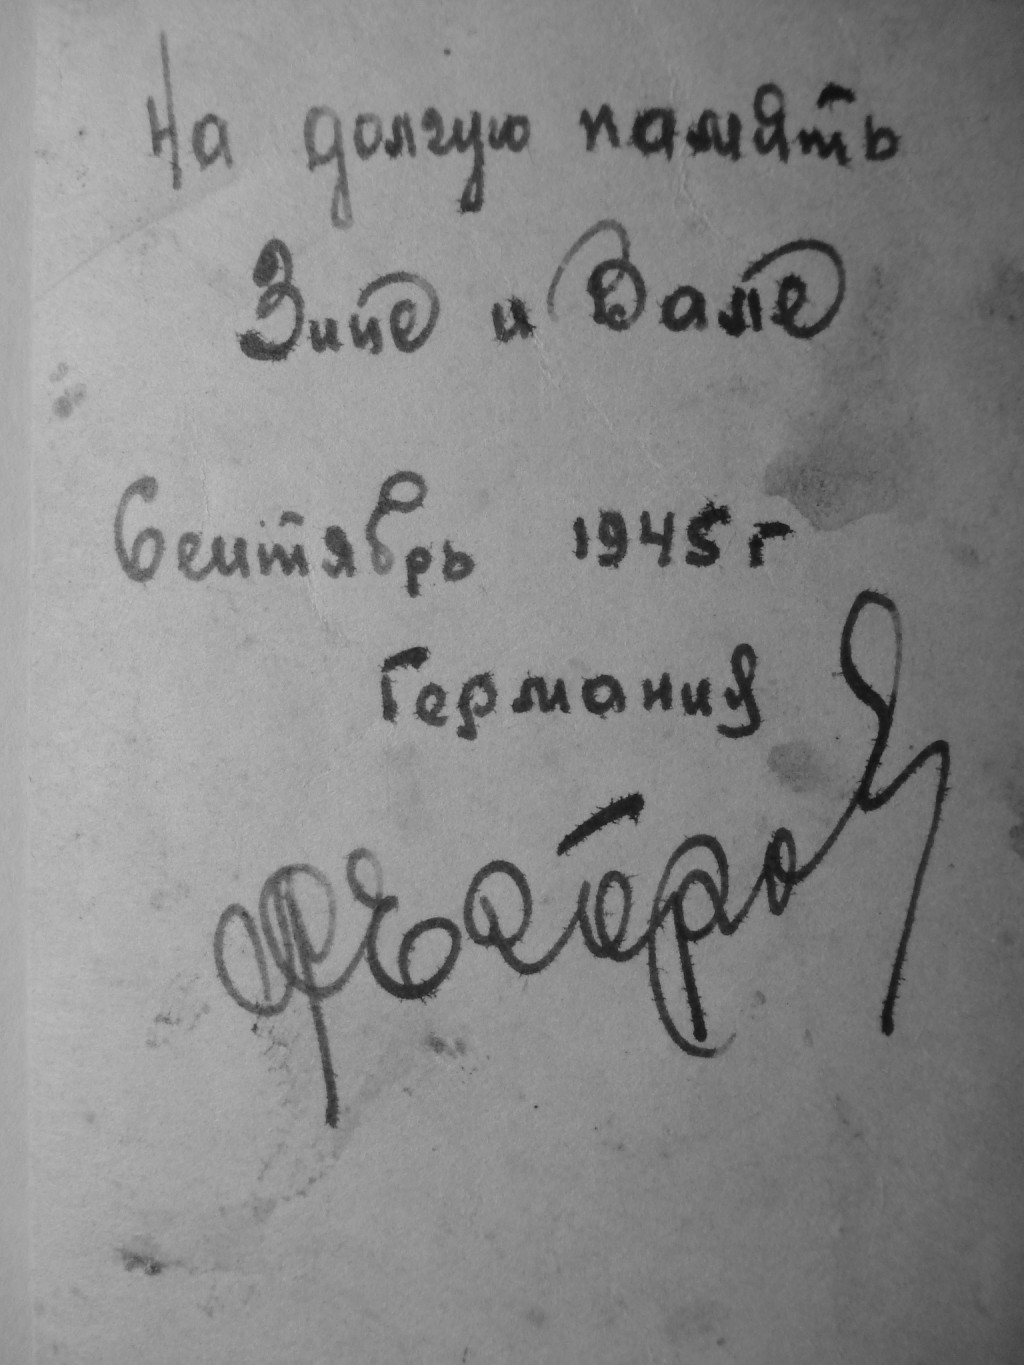 На долгую память
Зине и Вале
Сентябрь 1945 г
Германия